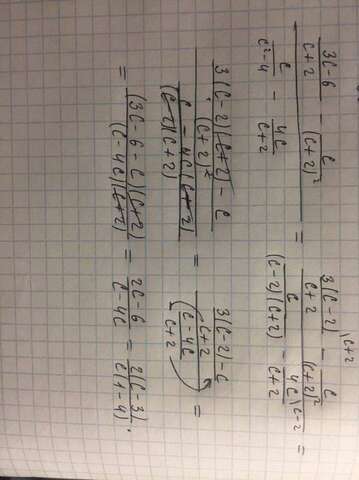 ((3c-6)/(c+2) - c/(c+2)²) / (c/(c²-4) - 4c/(c+2)) = (3(c-2)/(c+2) \c+2 - c/(c+2)²) / (c/((c-2)(c+2)) - 4c/(c+2) \c-2) =
((3(c-2)(c+2) - c)/(c+2)²) / ((c - 4c(c+2))/((c-2)(c+2))) = ((3(c-2)-c)/(c+2)) / ((c-4c)/(c+2)) =
= ((3c-6-c)(c+2))/((c-4c)(c+2)) = (2c-6)/(c-4c) = 2(c-3)/(c(1-4)).